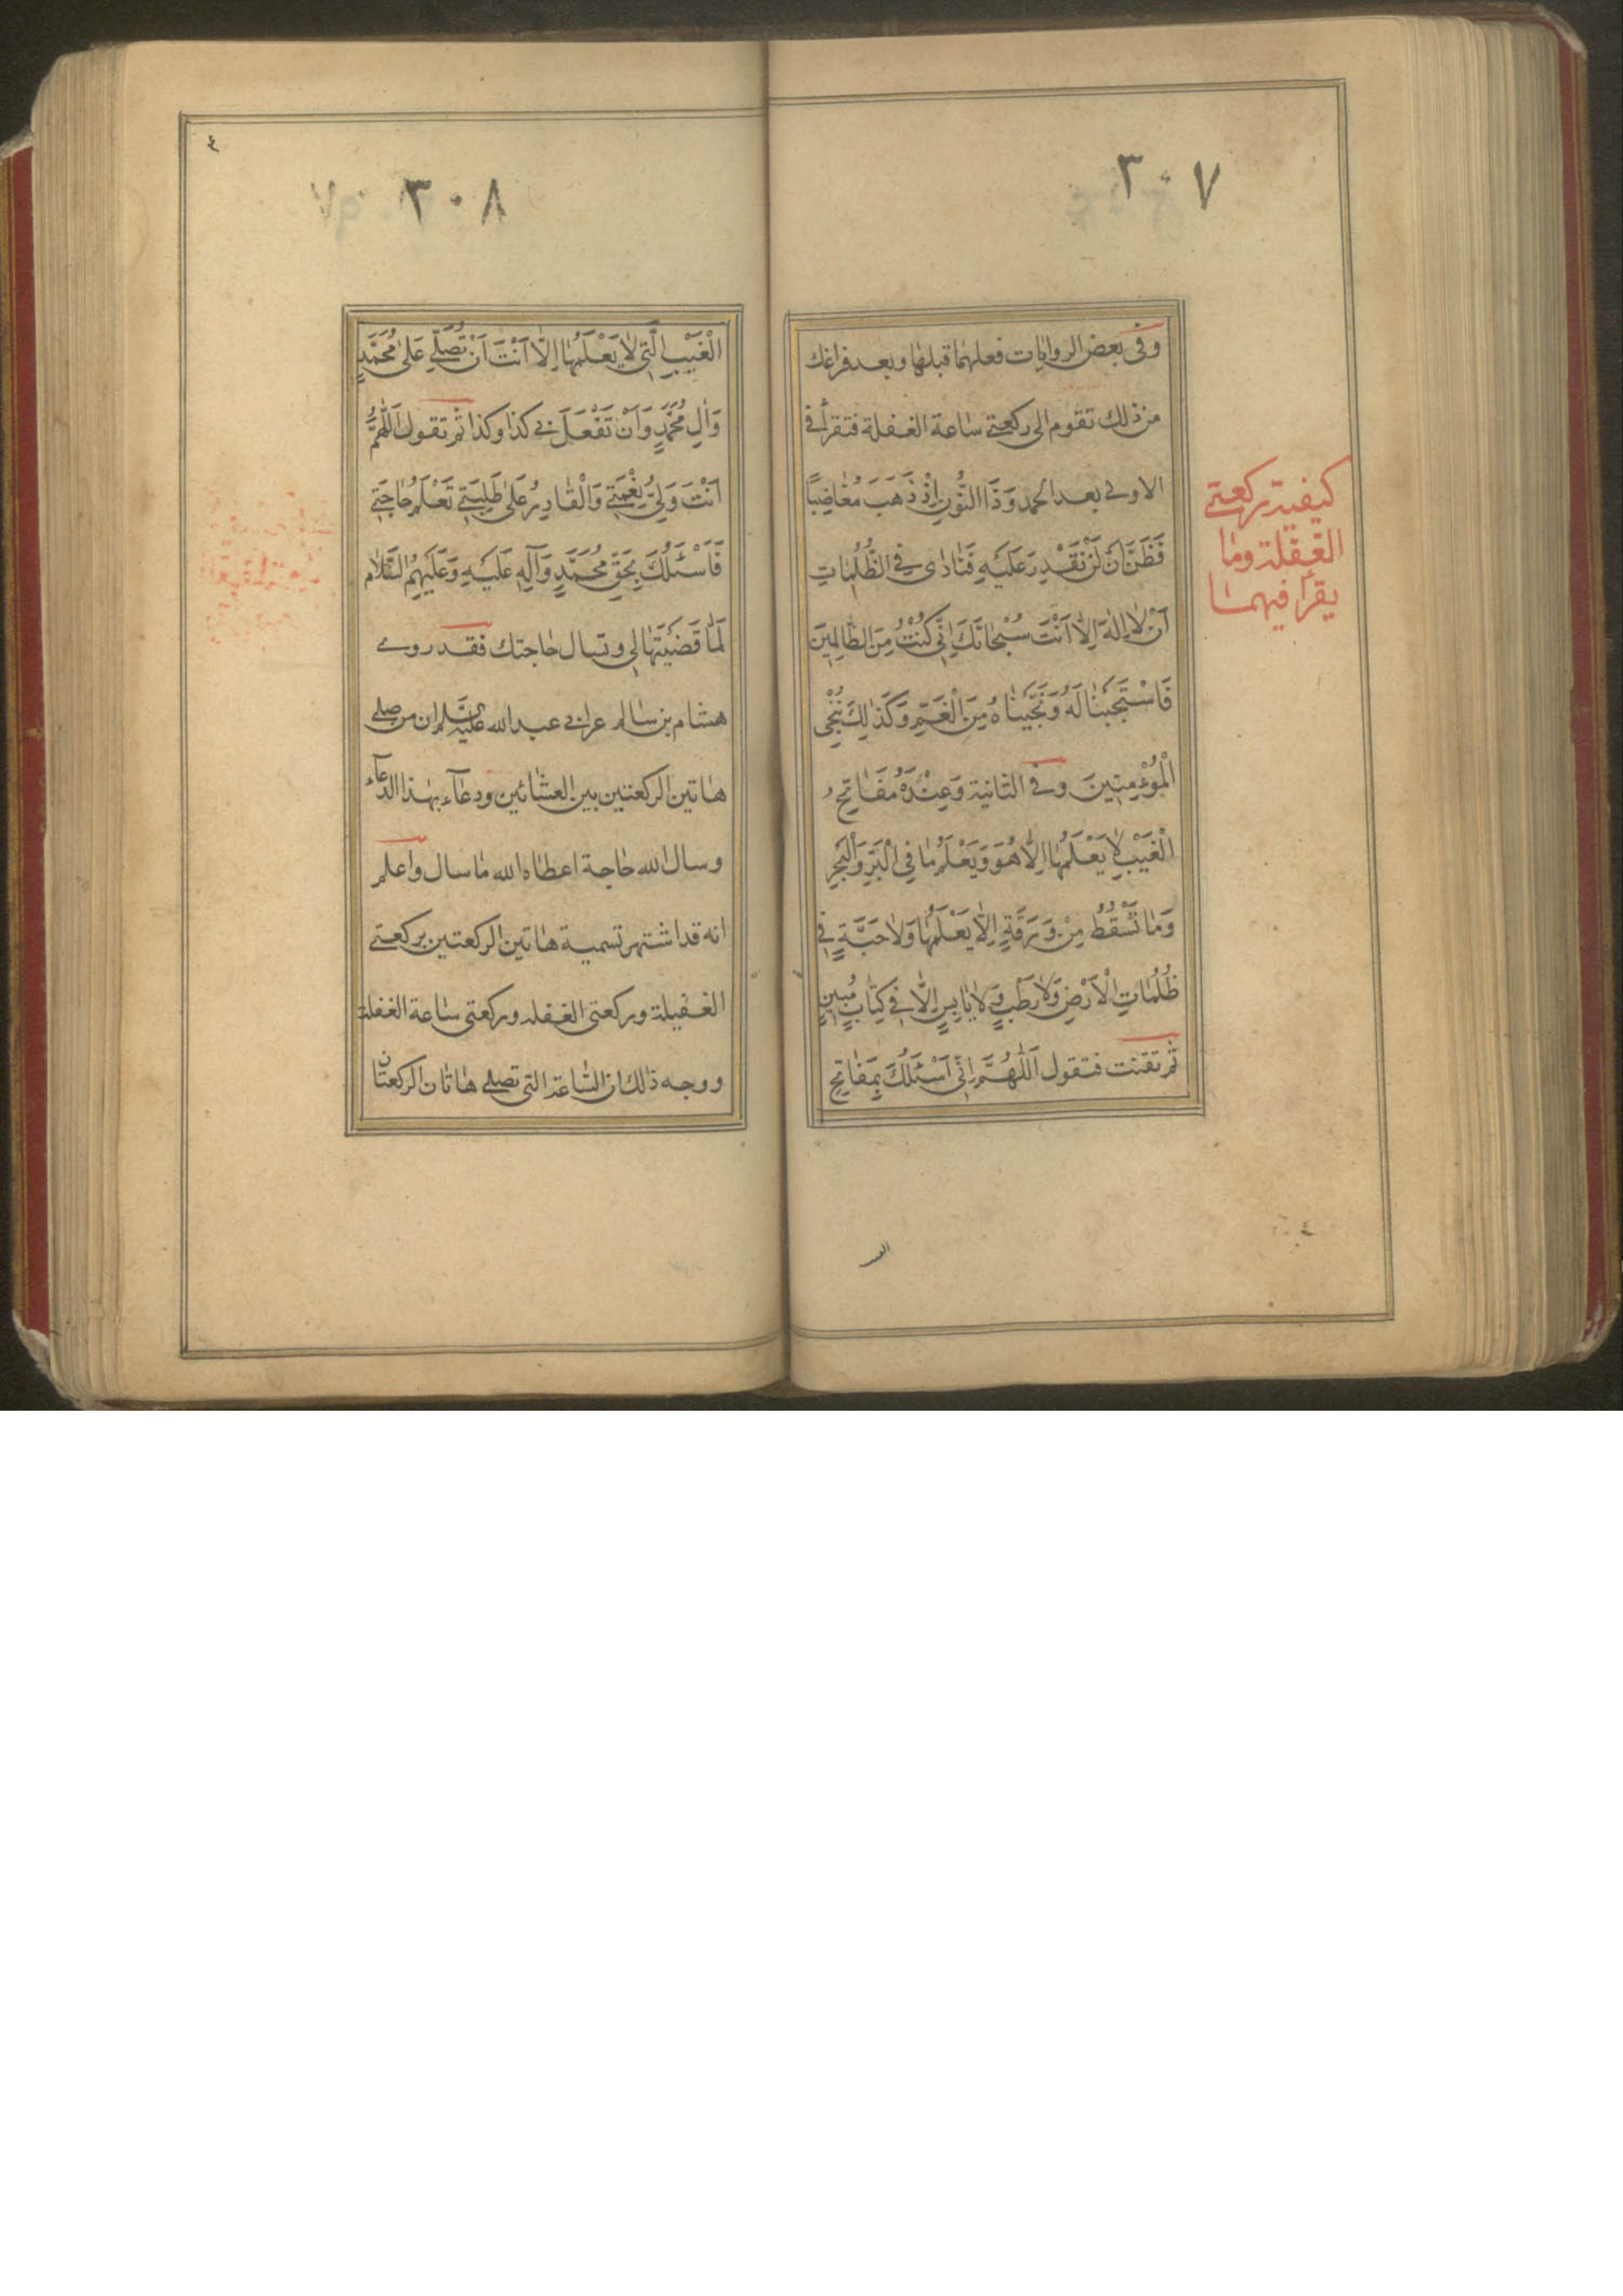 ٣٠٧
وفى بعض الروايات فعلهما قبلها وبعد فراغك
من ذلك تقوم الى ركعتى ساعة الغفلة فتقرأ فى
الاولى بعد الحمد وَذَا النُّونِ اِذْ ذَهَبَ مُغاضِبًا
فَظَنَّ اَنْ لَنْ نَقْدِرَ عَلَيْهِ فَنادٰى فِي الظُّلُمٰاتِ
اَنْ لٰا اِلٰهَ اِلّٰا اَنْتَ سُبْحٰانَكَ اِنّى كُنْتُ مِنَ الظّٰالِمِينَ
فَاسْتَجَبْنٰا لَهُ وَنَجَّيْنٰاهُ مِنَ الْغَمِّ وَكَذٰلِكَ نُنْجِى
الْمُؤْمِنِينَ وفى الثانية وَعِنْدَهُ مَفٰاتِحُ
الْغَيْبِ لٰا يَعْلَمُهٰا اِلّٰا هُوَ وَيَعْلَمُ مٰا فِى الْبَرِّ وَالْبَحْرِ
وَمٰا تَسْقُطُ مِنْ وَرَقَةٍ اِلّٰا يَعْلَمُهٰا وَلٰا حَبَّةٍ فِى
ظُلُمٰاتِ الْاَرْضِ وَلٰا رَطْبٍ وَلٰا يٰابِسٍ اِلّٰا فِى كِتٰابٍ مُبِينٍ
ثم تقنت فتقول اَللّٰهُمَّ اِنِّى اَسْئَلُكَ بِمَفٰاتِحِ
كيفية ركعتى
الغفلة وما
يقرأ فيهما
٣٠٨
الْغَيْبِ الَّتِى لٰا يَعْلَمُهٰا اِلّٰا اَنْتَ اَنْ تُصَلِّىَ عَلٰى مُحَمَّدٍ
وَاٰلِ مُحَمَّدٍ وَاَنْ تَفْعَلَ بى كذا وكذا ثم تقول اَللّٰهُمَّ
اَنْتَ وَلِىُّ نِعْمَتِى وَالْقٰادِرُ عَلٰى طَلِبَتِى تَعْلَمُ حٰاجَتِى
فَاَسْئَلُكَ بِحَقِّ مُحَمَّدٍ وَآلِهِ عَلَيْهِ وَعَلَيْهِمُ السَّلٰامُ
لَمّٰا قَضَيْتَهٰا لِى وتسال حاجتك فقد روى
هشام بن سالم عن ابى عبد الله عليه السلم ان من صلى
هاتين الركعتين بين العشائين ودعآء بهذا الدعآء
وسال الله حاجة اعطاه الله ما سال واعلم
انه قد اشتهر تسمية هاتين الركعتين بركعتى
الغفيلة وركعتى الغفله وركعتى ساعة الغفلة
ووجه ذلك ان الساعة التى تصلى هاتان الركعتان